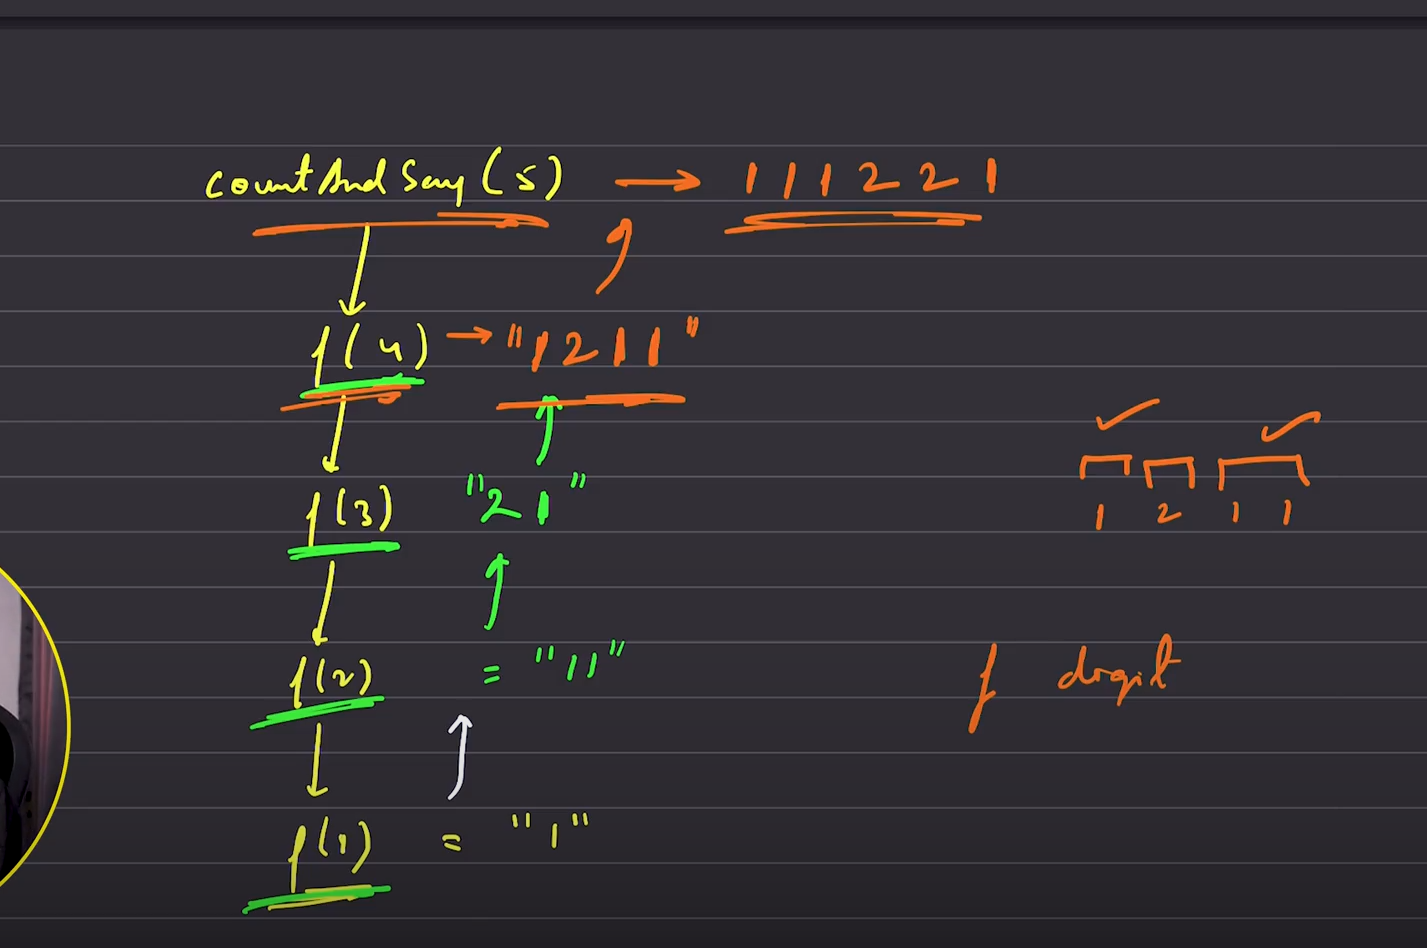 countAndSay(5) → 111221
f(4) → "1211"
f(3) "21"
1 2 1 1
f(2) = "11"
f digit
f(1) = "1"